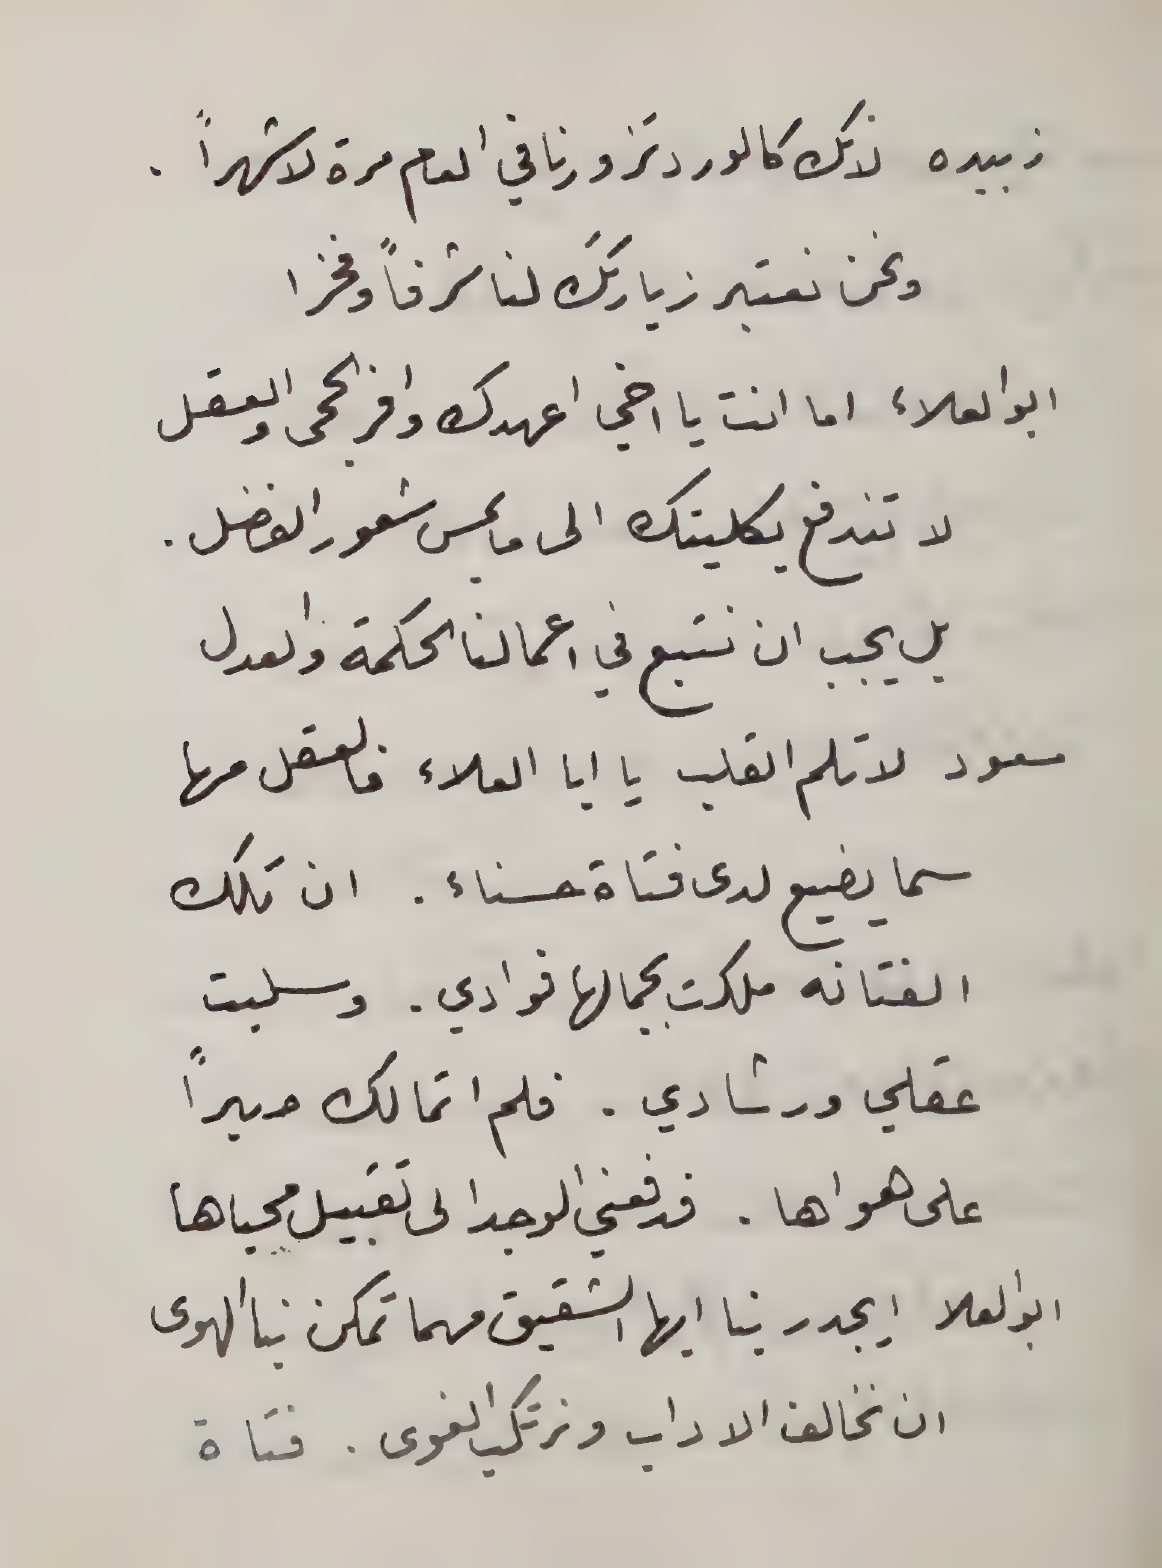 زبيده لانك كالورد تزورنا في العام مرة لا شهراً .
ونحن نعتبر زيارتكَ لنا شرفاً وفخرا
ابو العلاء اما انت يا اخي اعهدك وافر الحجى والعقل
لا تندفع بكليتك الى ما يمس شعور الفضل .
بل يجب ان نتبع في اعمالنا الحكمة والعدل
مسعود لا تلم القلب يا ابا العلاء فالعقل مهما
سما يضيع لدى فتاة حسناء . ان تلك
الفتانه ملكت بجمالها فوادي . وسلبت
عقلي ورشادي . فلم اتمالك صبراً
على هواها . فدفعني الوجد الى تقبيل محياها
ابو العلا ايجدر بنا ايها الشقيق مهما تمكن بنا الهوى
ان نخالف الاداب ونرتكب الغوى . فتاة